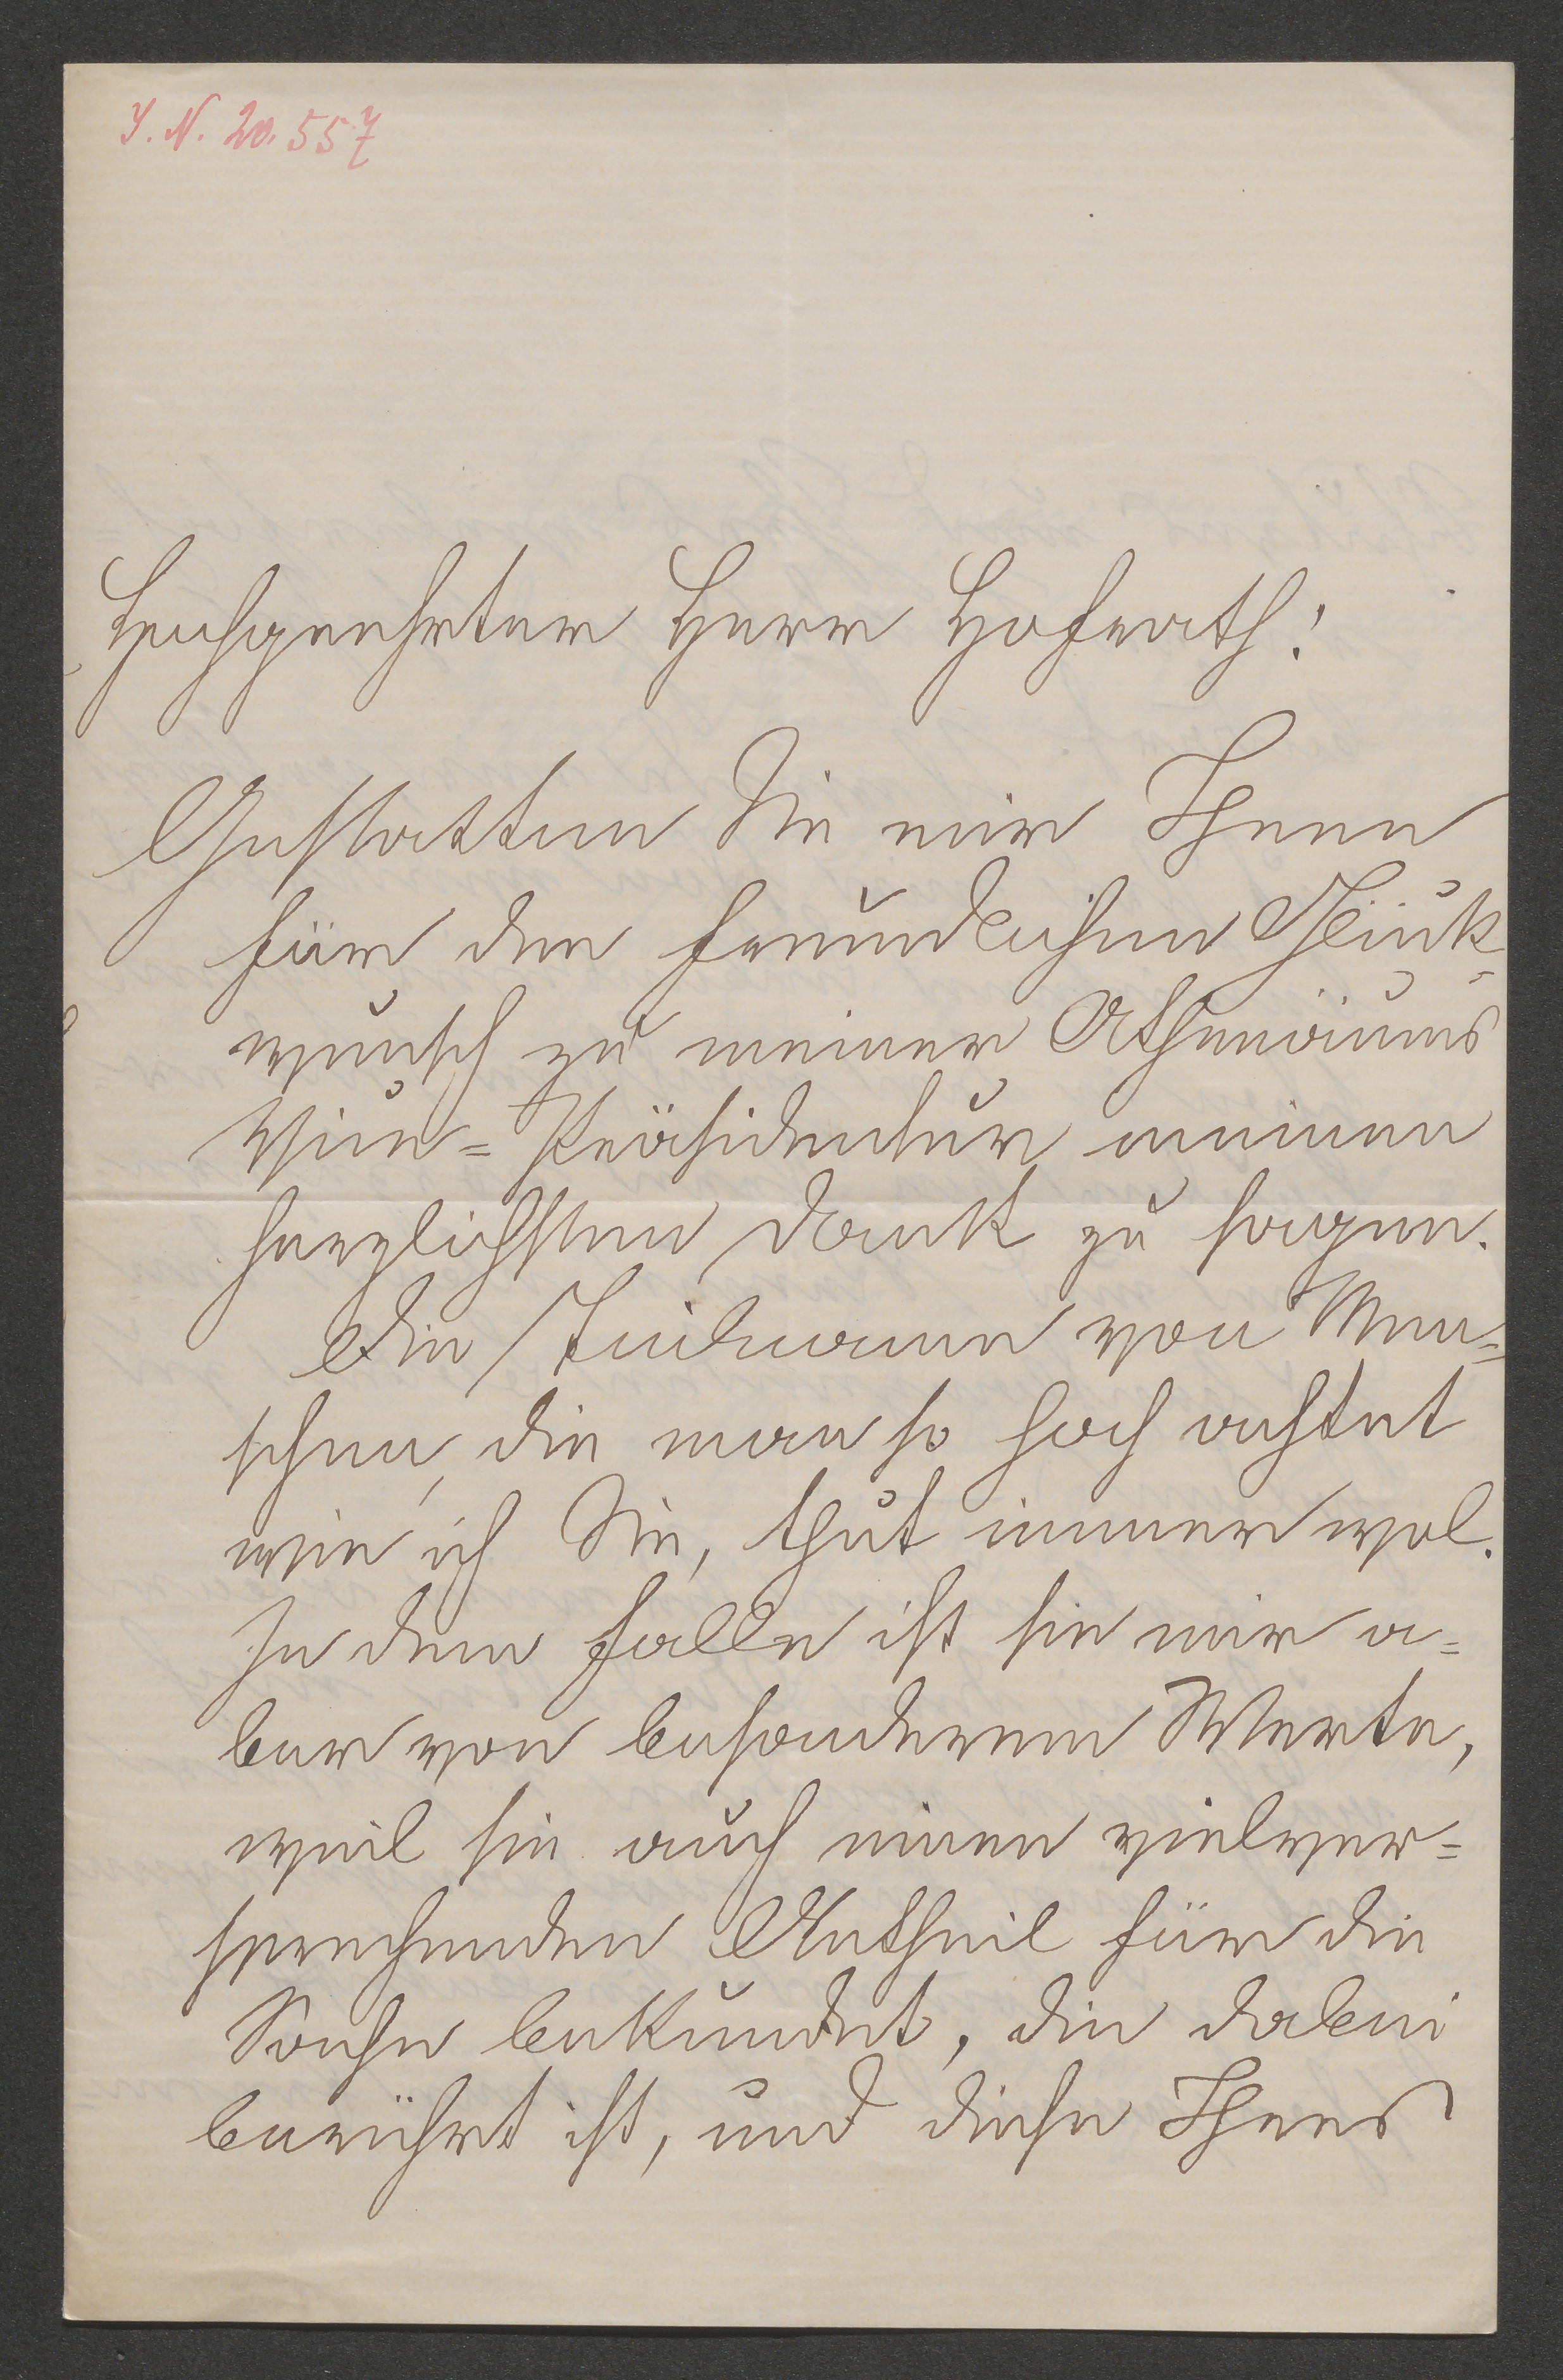 I. N. 20.557
Hochgeehrter Herr Hofrath!
Gestatten Sie mir Ihnen
für den freundlichen Glück-
wunsch zu meiner Athenäums
Vice=Präsidentur meinen
herzlichsten Dank zu sagen.
Die Theilname von Men=
schen, die man so hoch achtet
wie ich Sie, thut immer wol.
In dem Falle ist sie mir a=
ber von besonderem Werte,
weil sie auch einen vielver=
sprechenden Antheil für die
Sache bekundet, die dabei
berührt ist, und diese Ihres